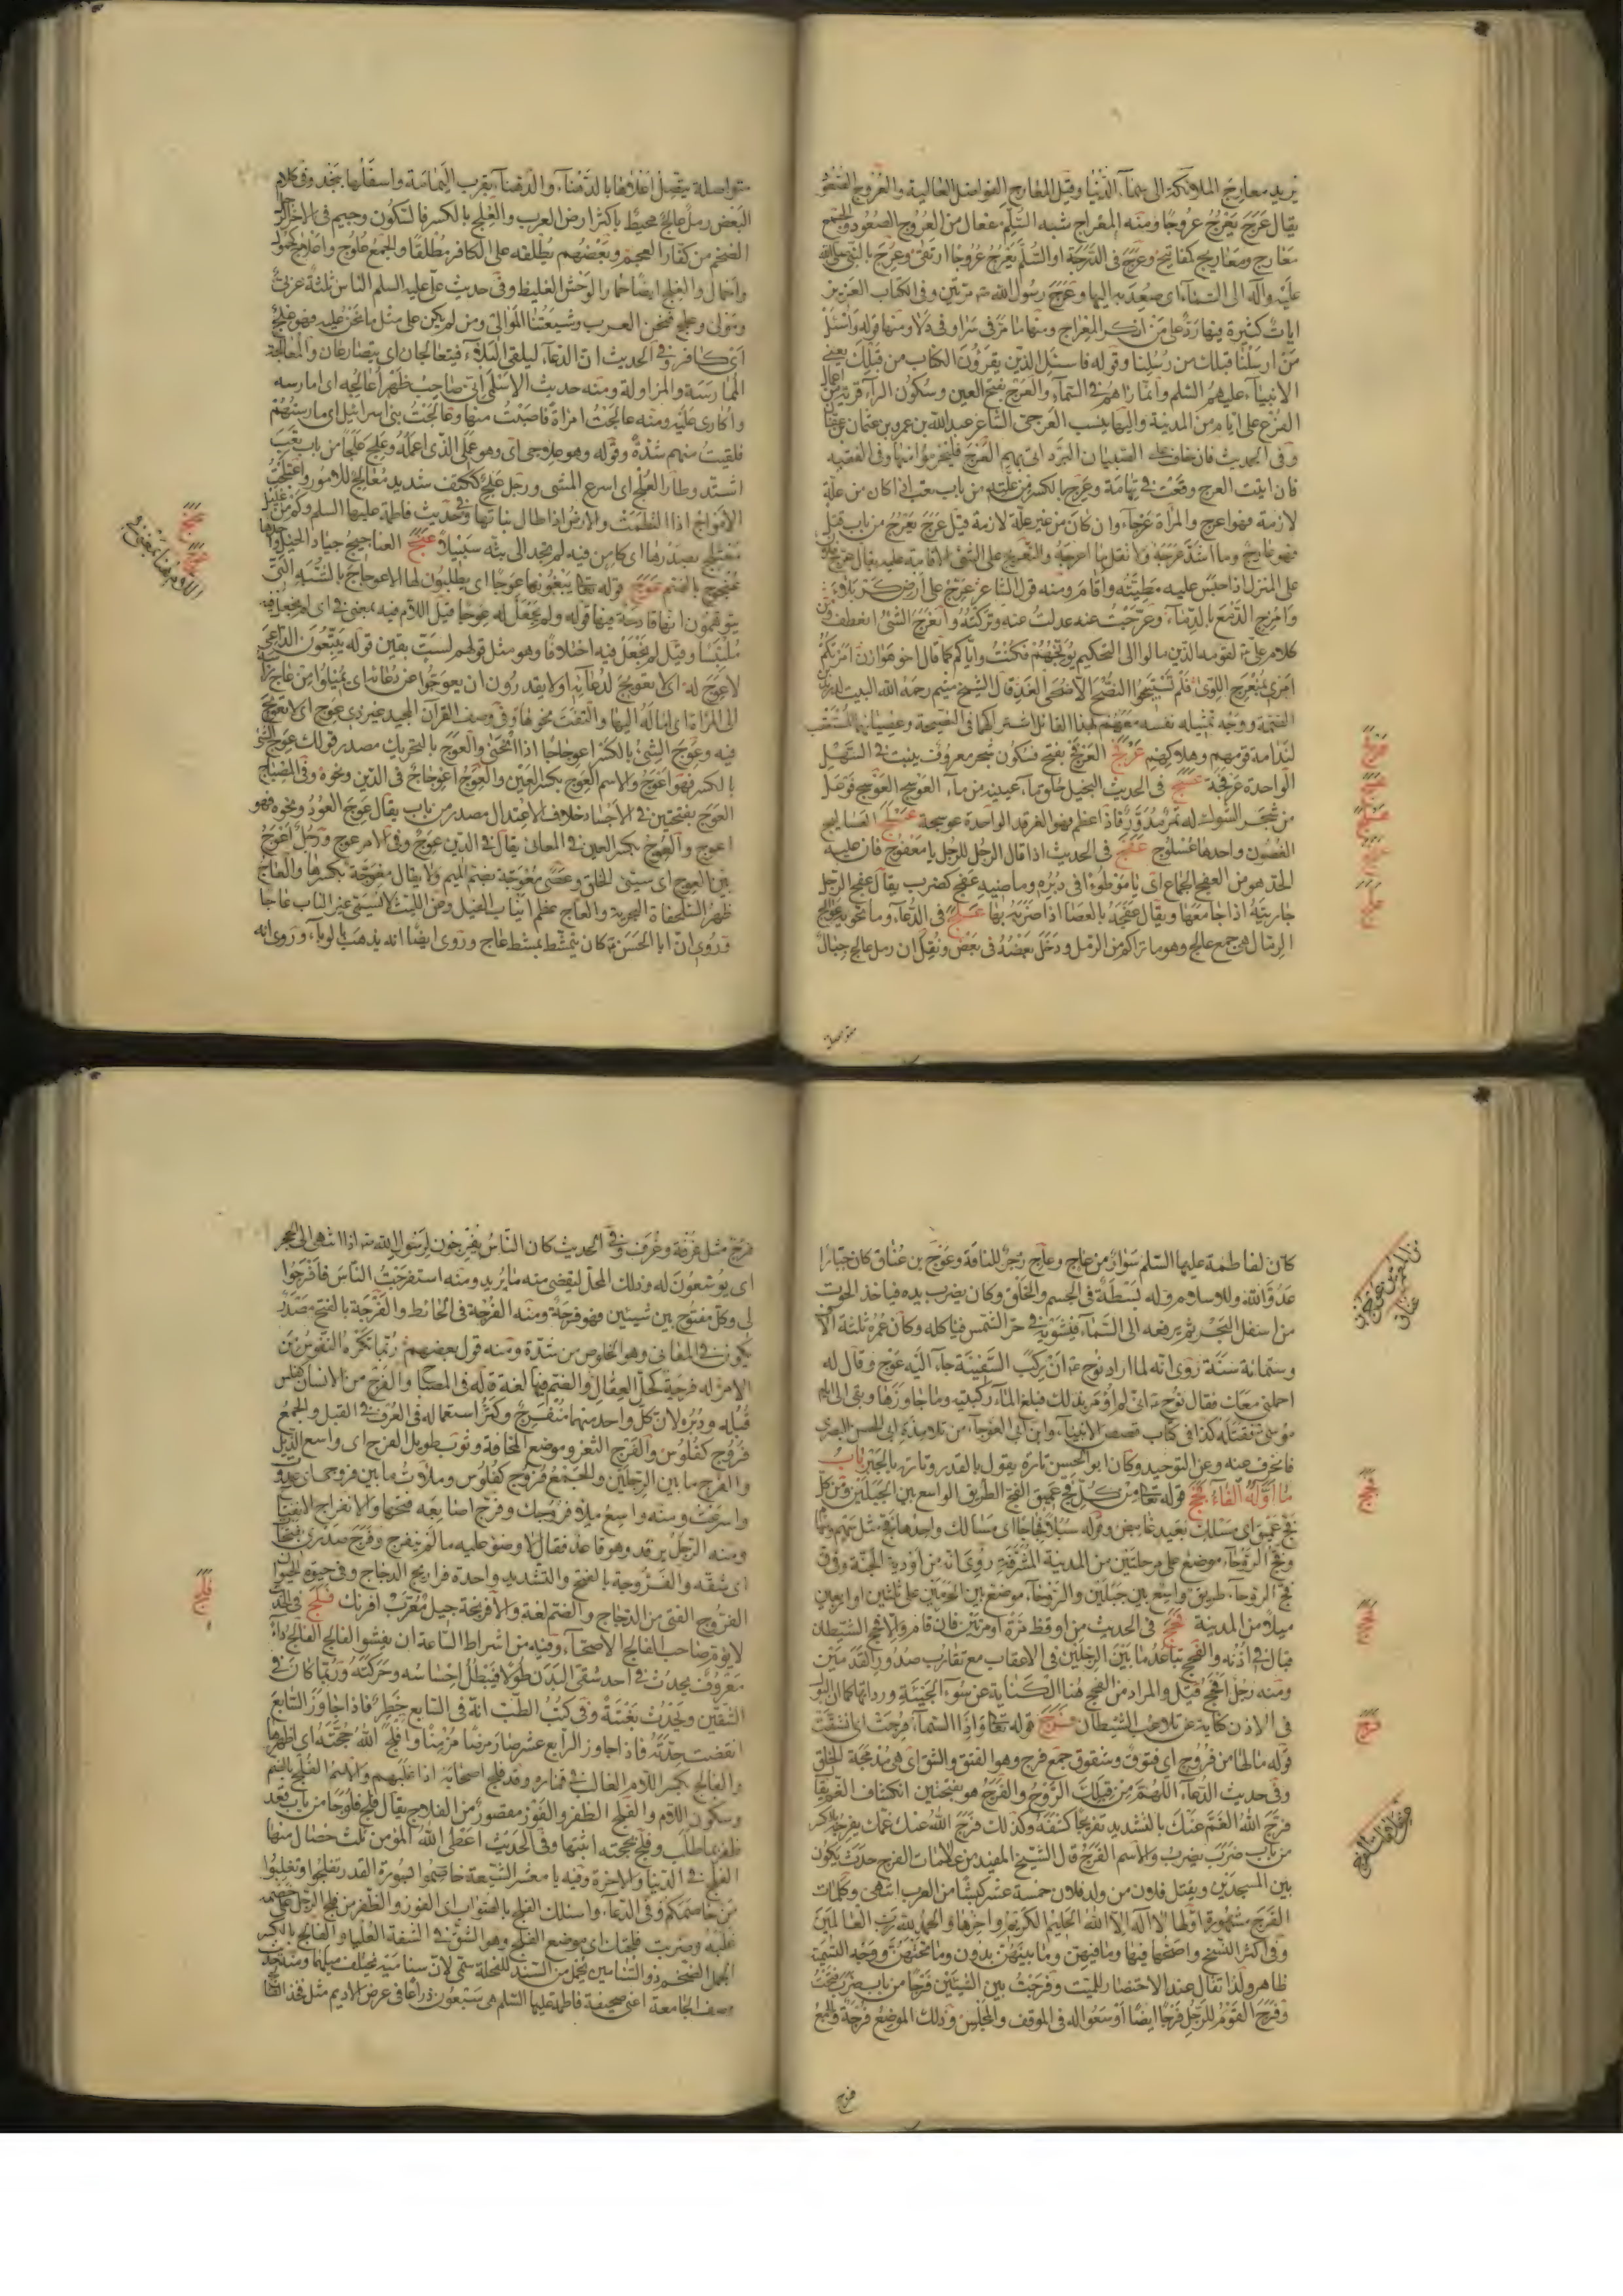 يريد معارج الملائكة الى سماء الدنيا وقيل المعارج الفواضل العالية والعروج الصعود
يقال عرج يعرج عروجا ومنه المعراج شبه السلم مفعال من العروج الصعود والجمع
معارج ومعاريج كمفاتيح وعرج فى الدرجة او السلم يعرج عروجا ارتقى وعرج بالنبى صلى الله
عليه وآله الى السماء اى صعد به اليها وعرج رسول الله ص مرتين وفى الكتاب العزيز
ايات كثيرة فيها رد على من انكر المعراج ومنها ما مر فى سرا وفى دلا ومنها قوله واسئل
من ارسلنا قبلك من رسلنا وقوله فاسئل الذين يقرؤن الكتاب من قبلك يعنى
الانبياء عليهم السلم وانما راهم فى السماء والعرج بفتح العين وسكون الراء قرية من اعمال
الفرع على ايام من المدينة واليها ينسب العرجى الشاعر عبد الله بن عمرو بن عثمان بن عفان
فان اتيت العرج وقعت فى تهامة وعرج بالكسر من باب تعب اذا كان من علة
لازمة فهو اعرج والمراة عرجاء وان كان من غير علة لازمة قيل عرج يعرج من باب قتل
فهو عارج وما اشد عرجه ولا تقل ما اعرجه والتعريج على الشئ الاقامة عليه يقال عرج فلان
على المنزل اذا حبس عليه مطيته واقام ومنه قول الشاعر عرج على ارض كربلاء
وامزج الدمع بالدماء وعرجت عنه عدلت عنه وتركته وانعرج الشئ انعطف ومن
كلام على ع لقومه الذين مالوا الى التحكيم يوبخهم فكنت واياكم كما قال اخو هوازن امرتكم
امرى بمنعرج اللوى فلم تستبينوا النصح الا ضحى الغد قال الشيخ ميثم رحمه الله البيت لدريد بن
الصمة ووجه تمثيله نفسه معهم بهذا القائل اشتراكهما فى النصيحة وعصيانهما المستعقب
لندامة قومهم وهلاكهم عرفج العرفج بفتح فسكون شجر معروف ينبت فى السهل
الواحدة عرفجة عسج فى الحديث النخيل خلق من ماء العوسج فوعل
من شجر الشوك له ثمر مدور فاذا عظم فهو الغرقد الواحدة عوسجة عسلج العساليج
الغصون واحدها عسلوج عفج فى الحديث اذا قال الرجل للرجل يا معفوج فان عليه
الحد هو من العفج الجماع اى يا موطوءا فى دبره وماضيه عفج كضرب يقال عفج الرجل
جاريته اذا جامعها ويقال عفجه بالعصا اذا ضربه بها علج فى الدعاء وما تحويه عوالج
الرمال هى جمع عالج وهو ما تراكم من الرمل ودخل بعضه فى بعض ونقل ان رمل عالج جبال
متواصلة
متواصلة يتصل اعلاها بالدهناء والدهناء بقرب اليمامة واسفلها بنجد وفى كلام
البعض رمل عالج محيط باكثر ارض العرب والعلج بالكسر فالسكون وجيم فى الاخر الرجل
الضخم من كفار العجم وبعضهم يطلقه على الكافر مطلقا والجمع علوج واعلاج كحمول
واحمال والعلج ايضا حمار الوحش الغليظ وفى حديث على عليه السلم الناس ثلثة عربى
ومولى وعلج فنحن العرب وشيعتنا الموالى ومن لم يكن على مثل ما نحن عليه فهو علج
اى كافر وفى الحديث ان الدعاء ليلقى البلاء فيتعالجان اى يتصارعان والمعالجة
الممارسة والمزاولة ومنه حديث الاسلمى انى صاحب ظهر اعالجه اى امارسه
واكارى عليه ومنه عالجت امراة فاصبت منها وعالجت بنى اسرائيل اى مارستهم
فلقيت منهم شدة وقوله وهو علاجى اى وهو عملى الذى اعمله وعلج علجا من باب تعب
اشتد وطار العلج اى اسرع المشى ورجل علج ككتف شديد معالج للامور واعتلجت
الامواج اذا التطمت والارض اذا طال نباتها وفى حديث فاطمة عليها السلم وكم من غليل
معتلج بصدرها اى كامن فيه لم تجد الى بثه سبيلا عنج العناجيج جياد الخيل واحدها
عنجوج بالضم عوج قوله تعالى يبغونها عوجا اى يطلبون لها الاعوجاج بالشبه التى
يتوهمون انها قادحة فيها قوله ولم يجعل له عوجا قيل اللام فيه بمعنى فى اى لم يجعل فيه
ملتبسا وقيل لم يجعل فيه اختلافا وهو مثل قولهم لست بقين قوله يتبعون الداعى
لا عوج له اى لا تعويج لدعائه اى لا يقدرون ان يعوجوا عن دعائه اى يميلوا من عاج
الى المراة اى امال اليها والتفت نحوها وفى وصف القران المجيد غير ذى عوج اى لا تعويج
فيه وعوج الشئ بالكسر اعوجاجا اذا انحنى والعوج بالتحريك مصدر قولك عوج الشئ
بالكسر فهو اعوج والاسم العوج بكسر العين والعوج اعوجاج فى الدين ونحوه وفى المصباح
العوج بفتحتين فى الاجساد خلاف الاعتدال مصدر من باب يقال عوج العود ونحوه فهو
اعوج والعوج بكسر العين فى المعانى يقال فى الدين عوج وفى الامر عوج ورجل اعوج
بين العوج اى سيئ الخلق وعصى معوجة بضم الميم ولا يقال معوجة بكسرها والعاج
ظهر السلحفاة البحرية والعاج عظم انياب الفيل وعن الليث لا يسمى غير الناب عاجا
وروى ان ابا الحسن ع كان يتمشط بمشط عاج وروى ايضا انه يذهب بالوباء وروى انه
كان لفاطمة عليها السلم سوار من عاج وعاج زجر للناقة وعوج بن عناق كان جبارا
عدوا لله وللاسلام وله بسطة فى الجسم والخلق وكان يضرب بيده فياخذ الحوت
من اسفل البحر ثم يرفعه الى السماء فيشويه فى حر الشمس فياكله وكان عمره ثلثة الاف
وستمائة سنة روى انه لما اراد نوح ع ان يركب السفينة جاء اليه عوج وقال له
احملنى معك فقال نوح ع انى لم اومر بذلك فبلغ الماء ركبتيه وما جاوزها وبقى الى ايام
موسى فقتله كذا فى كتاب قصص الانبياء وابن ابى العوجاء من تلامذة ابى الحسن البصرى
فانحرف عنه وعن التوحيد وكان ابو الحسن تارة يقول بالقدر وتارة بالجبر باب
ما اوله الفاء فجج قوله تعالى من كل فج عميق الفج الطريق الواسع بين الجبلين ومن كل
فج عميق اى مسلك بعيد غامض وقوله سبلا فجاجا اى مسالك واحدها فج مثل سهم وسهام
وفج الروحاء موضع على مرحلتين من المدينة المشرفة روى انه من اودية الجنة وفوق
فج الروحاء طريق واسع بين جبلين والروحاء موضع بين الحرمين على ثلثين او اربعين
ميلا من المدينة فحج فى الحديث من اوقظ مرة او مرتين فان قام والا فحج الشيطان
فبال فى اذنه والفحج تباعد ما بين الرجلين فى الاعقاب مع تقارب صدور القدمين
ومنه رجل افحج قيل والمراد من الفحج هنا الكناية عن سوء الجنيئة ورداتها كما ان البول
فى الاذن كناية عن تلاعب الشيطان فرج قوله تعالى واذا السماء فرجت اى انشقت
قوله ما لها من فروج اى فتوق وشقوق جمع فرج وهو الفتق والشق اى هى مدمجة الخلق
وفى حديث الدعاء اللهم من قبلك الروح والفرج هو بفتحتين انكشاف الغم يقال
فرج الله الغم عنك بالتشديد تفريجا كشفه وكذلك فرج الله عنك غمك يفرجه بالكسر
من باب ضرب يضرب والاسم الفرج قال الشيخ المفيد من علامات الفرج حدث يكون
بين المسجدين ويقتل فلان من ولد فلان خمسة عشر كبشا من العرب انتهى وكلمات
الفرج مشهورة اولها لا اله الا الله الحليم الكريم واخرها والحمد لله رب العالمين
وفى اكثر النسخ واصحها فيها وما فيهن وما بينهن بدون وما تحتهن ووجه التسمية
ظاهر ولذا تقال عند الاحتضار للميت وفرجت بين الشيئين فرجا من باب ضرب فتحت
وفرج القوم للرجل فرجا ايضا اوسعوا له فى الموقف والمجلس وذلك الموضع فرجة والجمع
فرج
فرج مثل غرفة وغرف وفى الحديث كان الناس يفرجون لرسول الله ص اذا انتهى الى الحجر
اى يوسعون له وذلك المحل ليقضى منه ما يريد ومنه استفرجت الناس فافرجوا
لى وكل مفتوح بين شيئين فهو فرجة ومنه الفرجة فى الحائط والفرجة بالفتح مصدر
يكون فى المعانى وهو الخلوص من شدة ومنه قول بعضهم ربما تكره النفوس من
الامر له فرجة كحل العقال والضم فيها لغة قاله فى المصباح والفرج من الانسان كفلس
قبله ودبره لان كل واحد منهما منفرج وكثر استعماله فى العرف فى القبل والجمع
فروج كفلوس والفرج الثغر وموضع المخافة وثوب طويل الفرج اى واسع الذيل
والفرج ما بين الرجلين والجمع فروج كفلوس وملات ما بين فروجها اى عدو
واسرعت ومنه واسع ميلا فروجك وفرج اصابعه فتحها والانفراج الانفتاح
ومنه الرجل يرقد وهو قاعد فقال لا وضوء عليه ما لم ينفرج وفرج صدرى بفتحها
اى شقه والفروجة بالفتح والتشديد واحدة فراريج الدجاج وفى حيوة الحيوان
الفروج الفتى من الدجاج والضم لغة والافرنجة جيل معرب افرنك فلج فى الحديث
لا يؤم صاحب الفالج الاصحاء وفيه من اشراط الساعة ان يفشو الفالج الفالج داء
معروف يحدث فى احد شقى البدن طولا فيبطل احساسه وحركته وربما كان فى
الشقين ويحدث بغتة وفى كتب الطب انه فى السابع خطر فاذا جاوز السابع
انقضت حدته فاذا جاوز الرابع عشر صار مرضا مزمنا وافلج الله حجته اى اظهرها
والفالج بكسر اللام الغالب فى قماره وقد فلج اصحابه اذا غلبهم والاسم الفلج بالضم
وسكون اللام والفلج الظفر والفوز مقصور من الفلاح يقال فلج فلوجا من باب قعد
ظفر بما طلب وفلج بحجته اثبتها وفى الحديث اعطى الله المؤمن ثلث خصال منها
الفلج فى الدنيا والاخرة وفيه يا معشر الشيعة خاصموا بسورة القدر تفلجوا وتغلبوا
من خاصمكم وفى الدعاء واسئلك الفلج بالصواب اى الفوز والظفر من فلج الرجل على خصمه
غلبه وضربت فلجتان اى موضع الفلج وهو الشق فى الشفة العليا والفالج بالكسر
الجمل الضخم ذو السنامين يحمل من السند للفحلة سمى لان سناميه يختلف ميلهما ومنه حديث
وصف الجامعة اعنى صحيفة فاطمة عليها السلم هى سبعون ذراعا فى عرض الاديم مثل فخذ الفالج
عنج
عوج
فجج
فحج
فرج
فلج